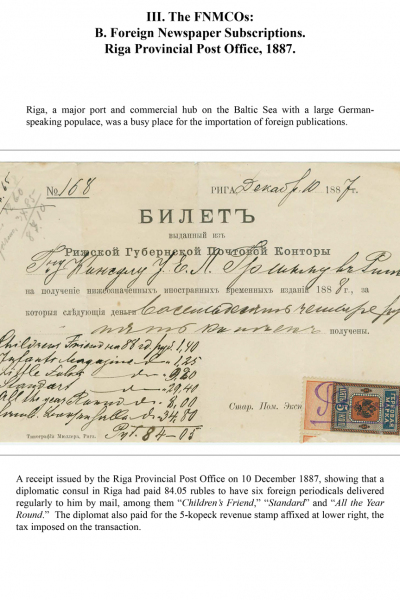 III. The FNMCOs:
B. Foreign Newspaper Subscriptions.
Riga Provincial Post Office, 1887.
Riga, a major port and commercial hub on the Baltic Sea with a large German-
speaking populace, was a busy place for the importation of foreign publications.
№ 168 РИГА Декабр. 10 1887 г.
БИЛЕТЪ
выданный изъ
Рижской Губернской Почтовой Конторы
Консулу
на полученіе нижеозначенныхъ иностранныхъ временныхъ изданій 1888 г., за
которыя слѣдующія деньги восемьдесятъ четыре
пять копѣекъ получены.
Children's Friend 1,40
Infants Magazine 1,25
Little Folks
Standard
All the year Round 8,00
34,80
84-05
Стар. Пом. Экз
5 КОП
ГЕРБОВАЯ МАРКА
Типографія Мюллера, Рига.
A receipt issued by the Riga Provincial Post Office on 10 December 1887, showing that a
diplomatic consul in Riga had paid 84.05 rubles to have six foreign periodicals delivered
regularly to him by mail, among them “Children’s Friend,” “Standard” and “All the Year
Round.” The diplomat also paid for the 5-kopeck revenue stamp affixed at lower right, the
tax imposed on the transaction.